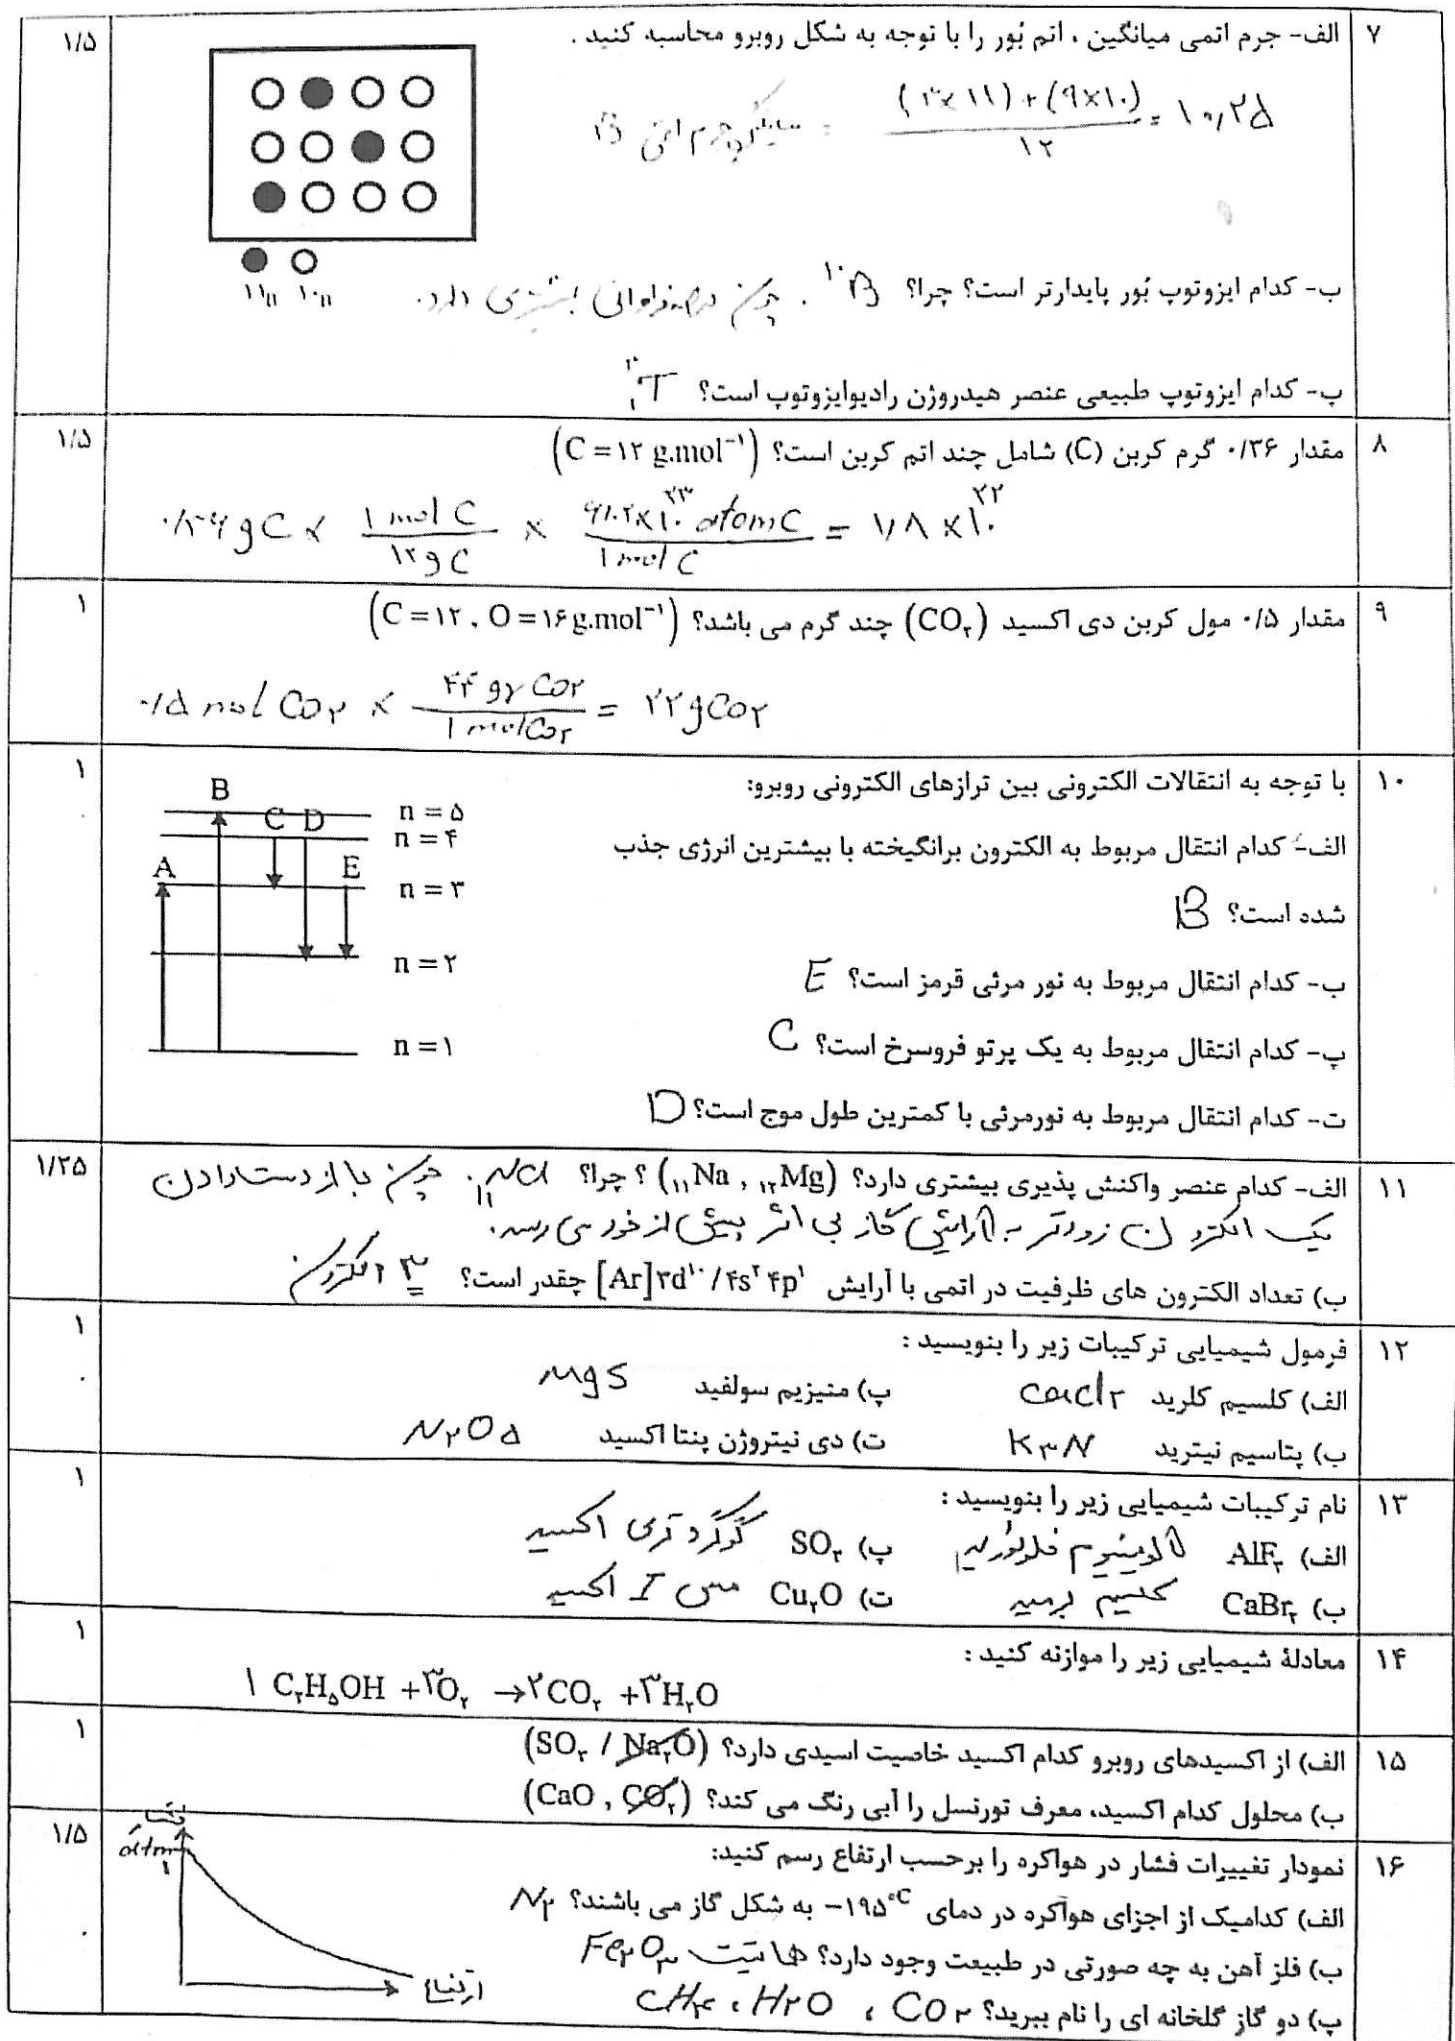 ۷ الف- جرم اتمی میانگین ، اتم بُور را با توجه به شکل روبرو محاسبه کنید . ۱/۵
میانگین جرم اتمی B = ((۳×۱۱)+(۹×۱۰))/۱۲ = ۱۰٫۲۵
۱۱B ۱۰B
ب- کدام ایزوتوپ بُور پایدارتر است؟ چرا؟ ۱۰B . چون درصد فراوانی بیشتری دارد.
پ- کدام ایزوتوپ طبیعی عنصر هیدروژن رادیوایزوتوپ است؟ ³₁T
۸ مقدار ۰/۳۶ گرم کربن (C) شامل چند اتم کربن است؟ (C = ۱۲ g.mol⁻¹) ۱/۵
۰/۳۶ gC × (۱ mol C)/(۱۲ g C) × (۶/۰۲×۱۰^۲۳ atom C)/(۱ mol C) = ۱/۸ × ۱۰^۲۲
۹ مقدار ۰/۵ مول کربن دی اکسید (CO₂) چند گرم می باشد؟ (C = ۱۲ , O = ۱۶ g.mol⁻¹) ۱
۰/۵ mol CO۲ × (۴۴ gr CO۲)/(۱ mol CO۲) = ۲۲ g CO۲
۱۰ با توجه به انتقالات الکترونی بین ترازهای الکترونی روبرو: ۱
الف- کدام انتقال مربوط به الکترون برانگیخته با بیشترین انرژی جذب
شده است؟ B
ب- کدام انتقال مربوط به نور مرئی قرمز است؟ E
پ- کدام انتقال مربوط به یک پرتو فروسرخ است؟ C
ت- کدام انتقال مربوط به نورمرئی با کمترین طول موج است؟ D
B
C D
A E
n = ۵
n = ۴
n = ۳
n = ۲
n = ۱
۱۱ الف- کدام عنصر واکنش پذیری بیشتری دارد؟ (₁₁Na , ₁₂Mg) ؟ چرا؟ ₁₁Na . چون با از دست دادن ۱/۲۵
یک الکترون زودتر به آرایش گاز بی اثر پیش از خود می رسد.
ب) تعداد الکترون های ظرفیت در اتمی با آرایش [Ar]۳d^۱۰ / ۴s^۲ ۴p^۱ چقدر است؟ ۳ الکترون
۱۲ فرمول شیمیایی ترکیبات زیر را بنویسید : ۱
الف) کلسیم کلرید CaCl۲ پ) منیزیم سولفید MgS
ب) پتاسیم نیترید K۳N ت) دی نیتروژن پنتا اکسید N۲O۵
۱۳ نام ترکیبات شیمیایی زیر را بنویسید : ۱
الف) AlF₃ آلومینیوم فلوئورید پ) SO₃ گوگرد تری اکسید
ب) CaBr₂ کلسیم برمید ت) Cu₂O مس I اکسید
۱۴ معادلهٔ شیمیایی زیر را موازنه کنید : ۱
۱ C₂H₅OH + ۳O₂ → ۲CO₂ + ۳H₂O
۱۵ الف) از اکسیدهای روبرو کدام اکسید خاصیت اسیدی دارد؟ (SO₃ / Na₂O) ۱
ب) محلول کدام اکسید، معرف تورنسل را آبی رنگ می کند؟ (CaO , CO₂)
۱۶ نمودار تغییرات فشار در هواکره را برحسب ارتفاع رسم کنید: ۱/۵
الف) کدامیک از اجزای هواکره در دمای ۱۹۵°C- به شکل گاز می باشند؟ N۲
ب) فلز آهن به چه صورتی در طبیعت وجود دارد؟ هماتیت Fe۲O۳
پ) دو گاز گلخانه ای را نام ببرید؟ CO۲ ، H۲O ، CH۴
فشار
atm
۱
ارتفاع